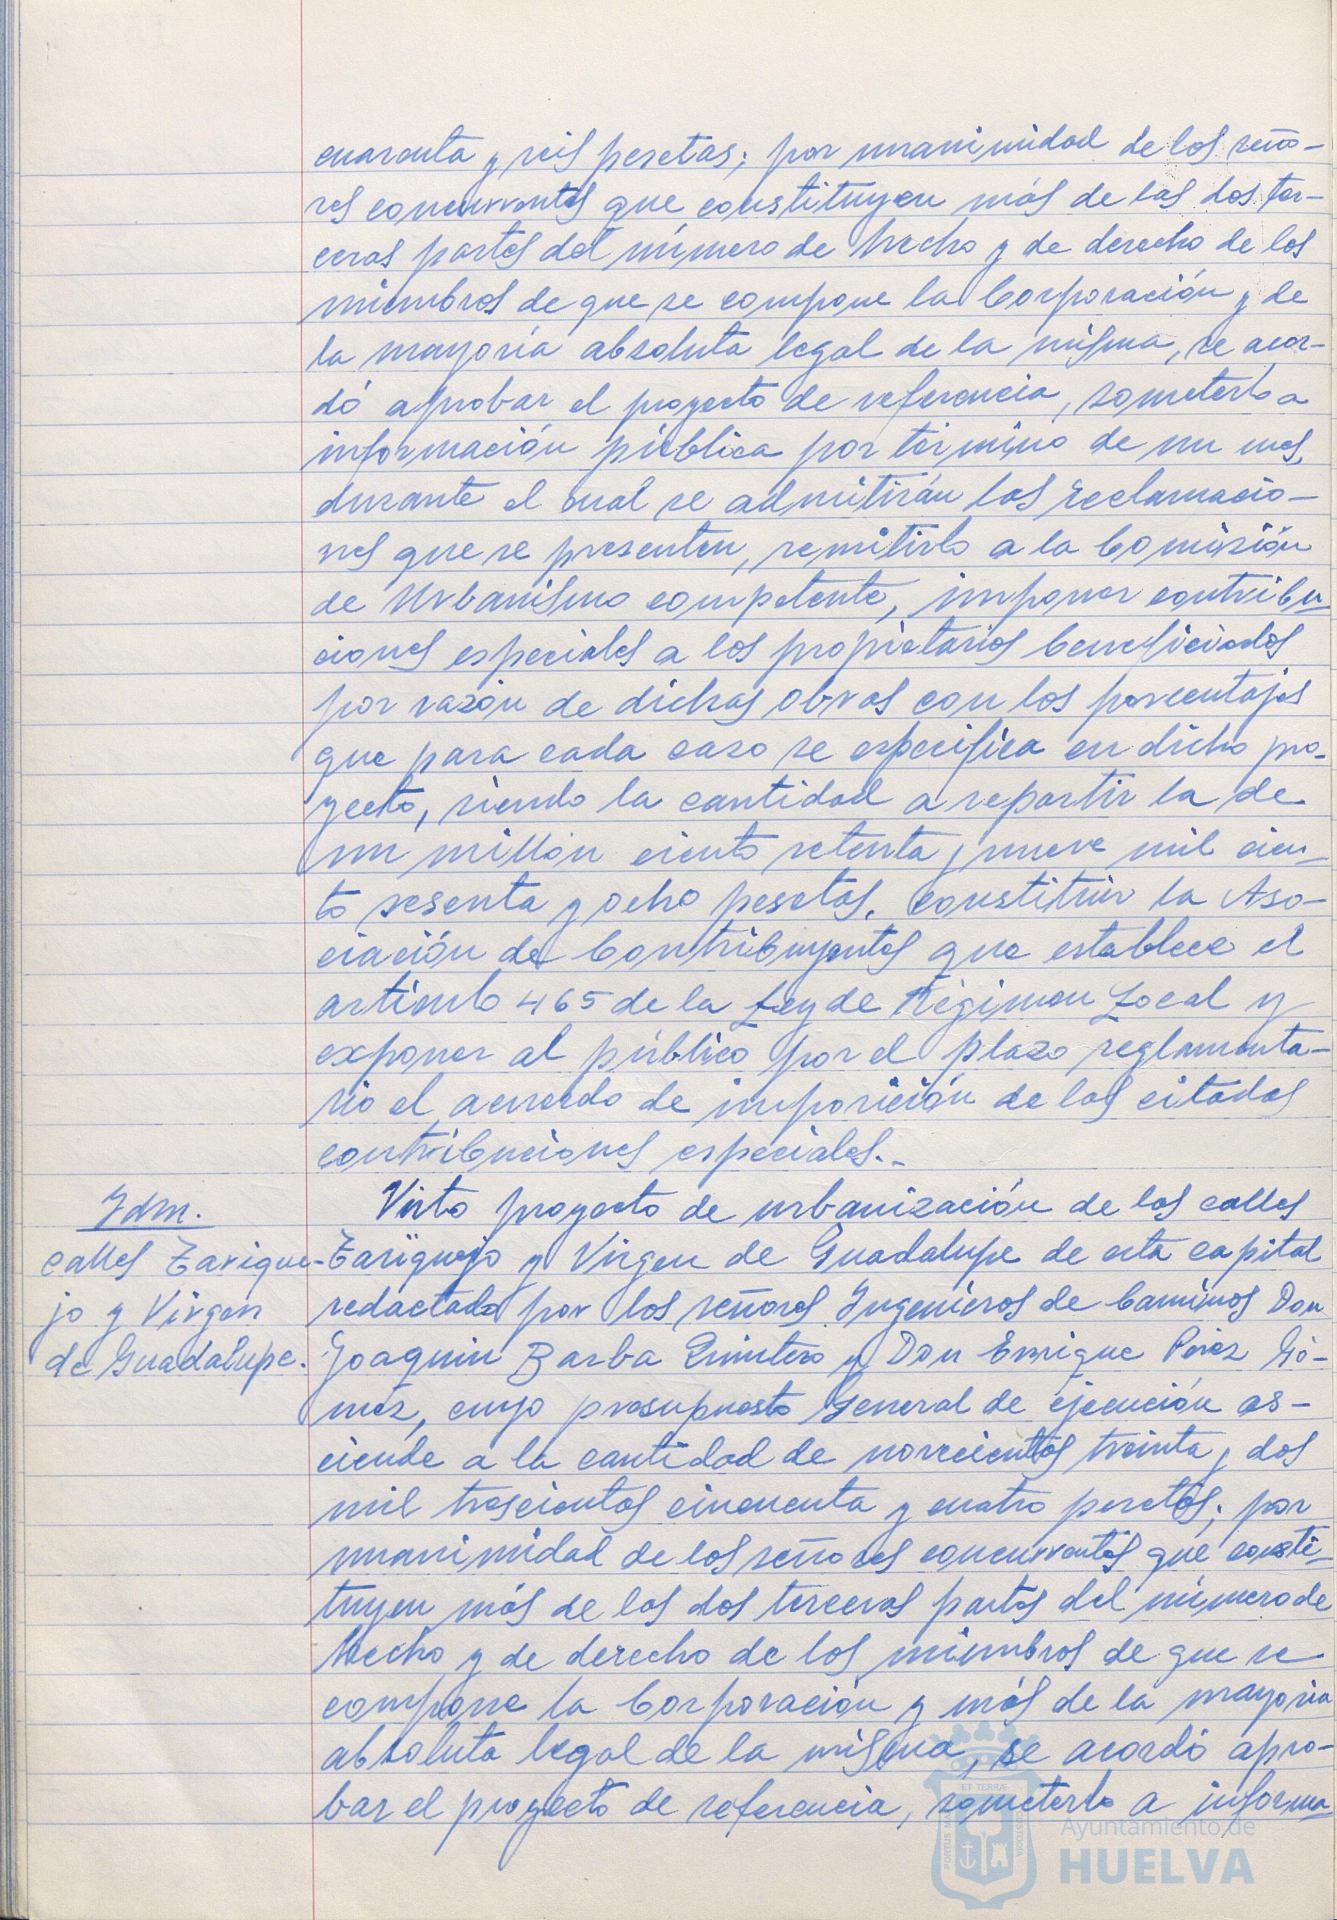 cuarenta y seis pesetas; por unanimidad de los seño-
res concurrentes que constituyen más de las dos ter-
ceras partes del número de hecho y de derecho de los
miembros de que se compone la Corporación y de
la mayoría absoluta legal de la misma, se acor-
dó aprobar el proyecto de referencia, someterlo a
información pública por término de un mes,
durante el cual se admitirán las reclamacio-
nes que se presenten, remitirlo a la Comisión
de Urbanismo competente, imponer contribu
ciones especiales a los propietarios beneficiados
por razón de dichas obras con los porcentajes
que para cada caso se especifica en dicho pro-
yecto, siendo la cantidad a repartir la de
un millón ciento setenta y nueve mil cien-
to sesenta y ocho pesetas, constituir la Aso-
ciación de Contribuyentes que establece el
artículo 465 de la Ley de Régimen Local y
exponer al público por el plazo reglamenta-
rio el acuerdo de imposición de las citadas
contribuciones especiales.-
Idm.
calles Zarigue-
jo y Virgen
de Guadalupe.
Visto proyecto de urbanización de las calles
Zariguejo y Virgen de Guadalupe de esta capital
redactado por los señores Ingenieros de Caminos Don
Joaquin Barba Quintero y Don Enrique Pérez Gó-
mez, cuyo presupuesto general de ejecución as-
ciende a la cantidad de novecientas treinta y dos
mil trescientas cincuenta y cuatro pesetas; por
unanimidad de los señores concurrentes que consti-
tuyen más de las dos terceras partes del número de
hecho y de derecho de los miembros de que se
compone la Corporación y más de la mayoría
absoluta legal de la misma, se acordó apro-
bar el proyecto de referencia, someterlo a informa
Ayuntamiento de
HUELVA